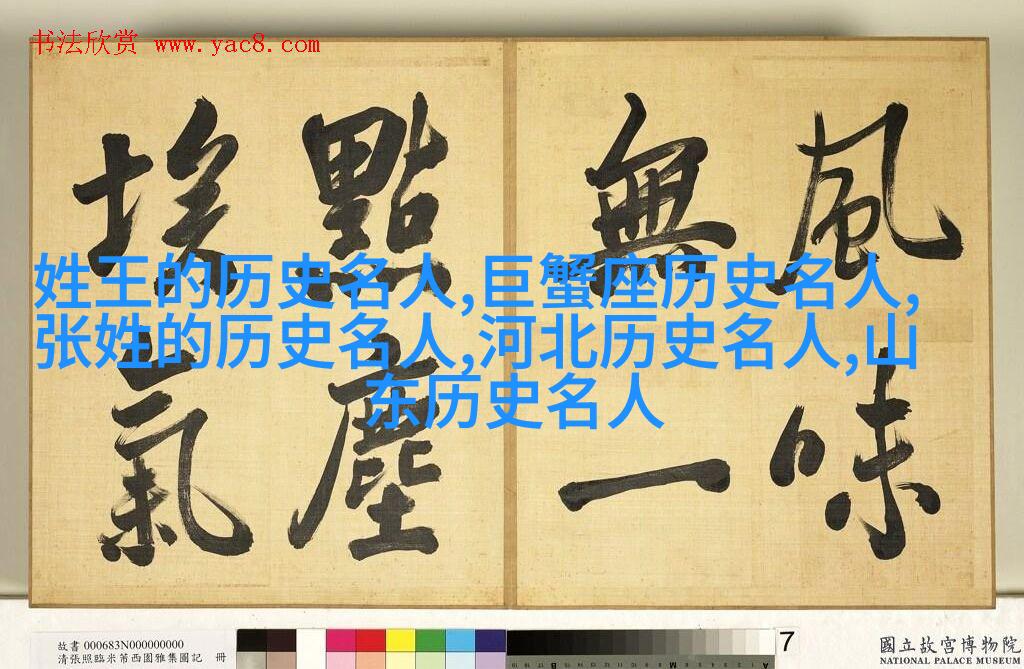 书法欣赏 www.yac8.com
風味
無一
點塵
埃氣
姓王的历史名人,巨蟹座历史名人,
张姓的历史名人,河北历史名人,山
东历史名人
故書 000683N000000000
清張照臨米芾西園雅集圖記 冊
7
國立故宮博物院
NATIONAL PALACE MUSEUM